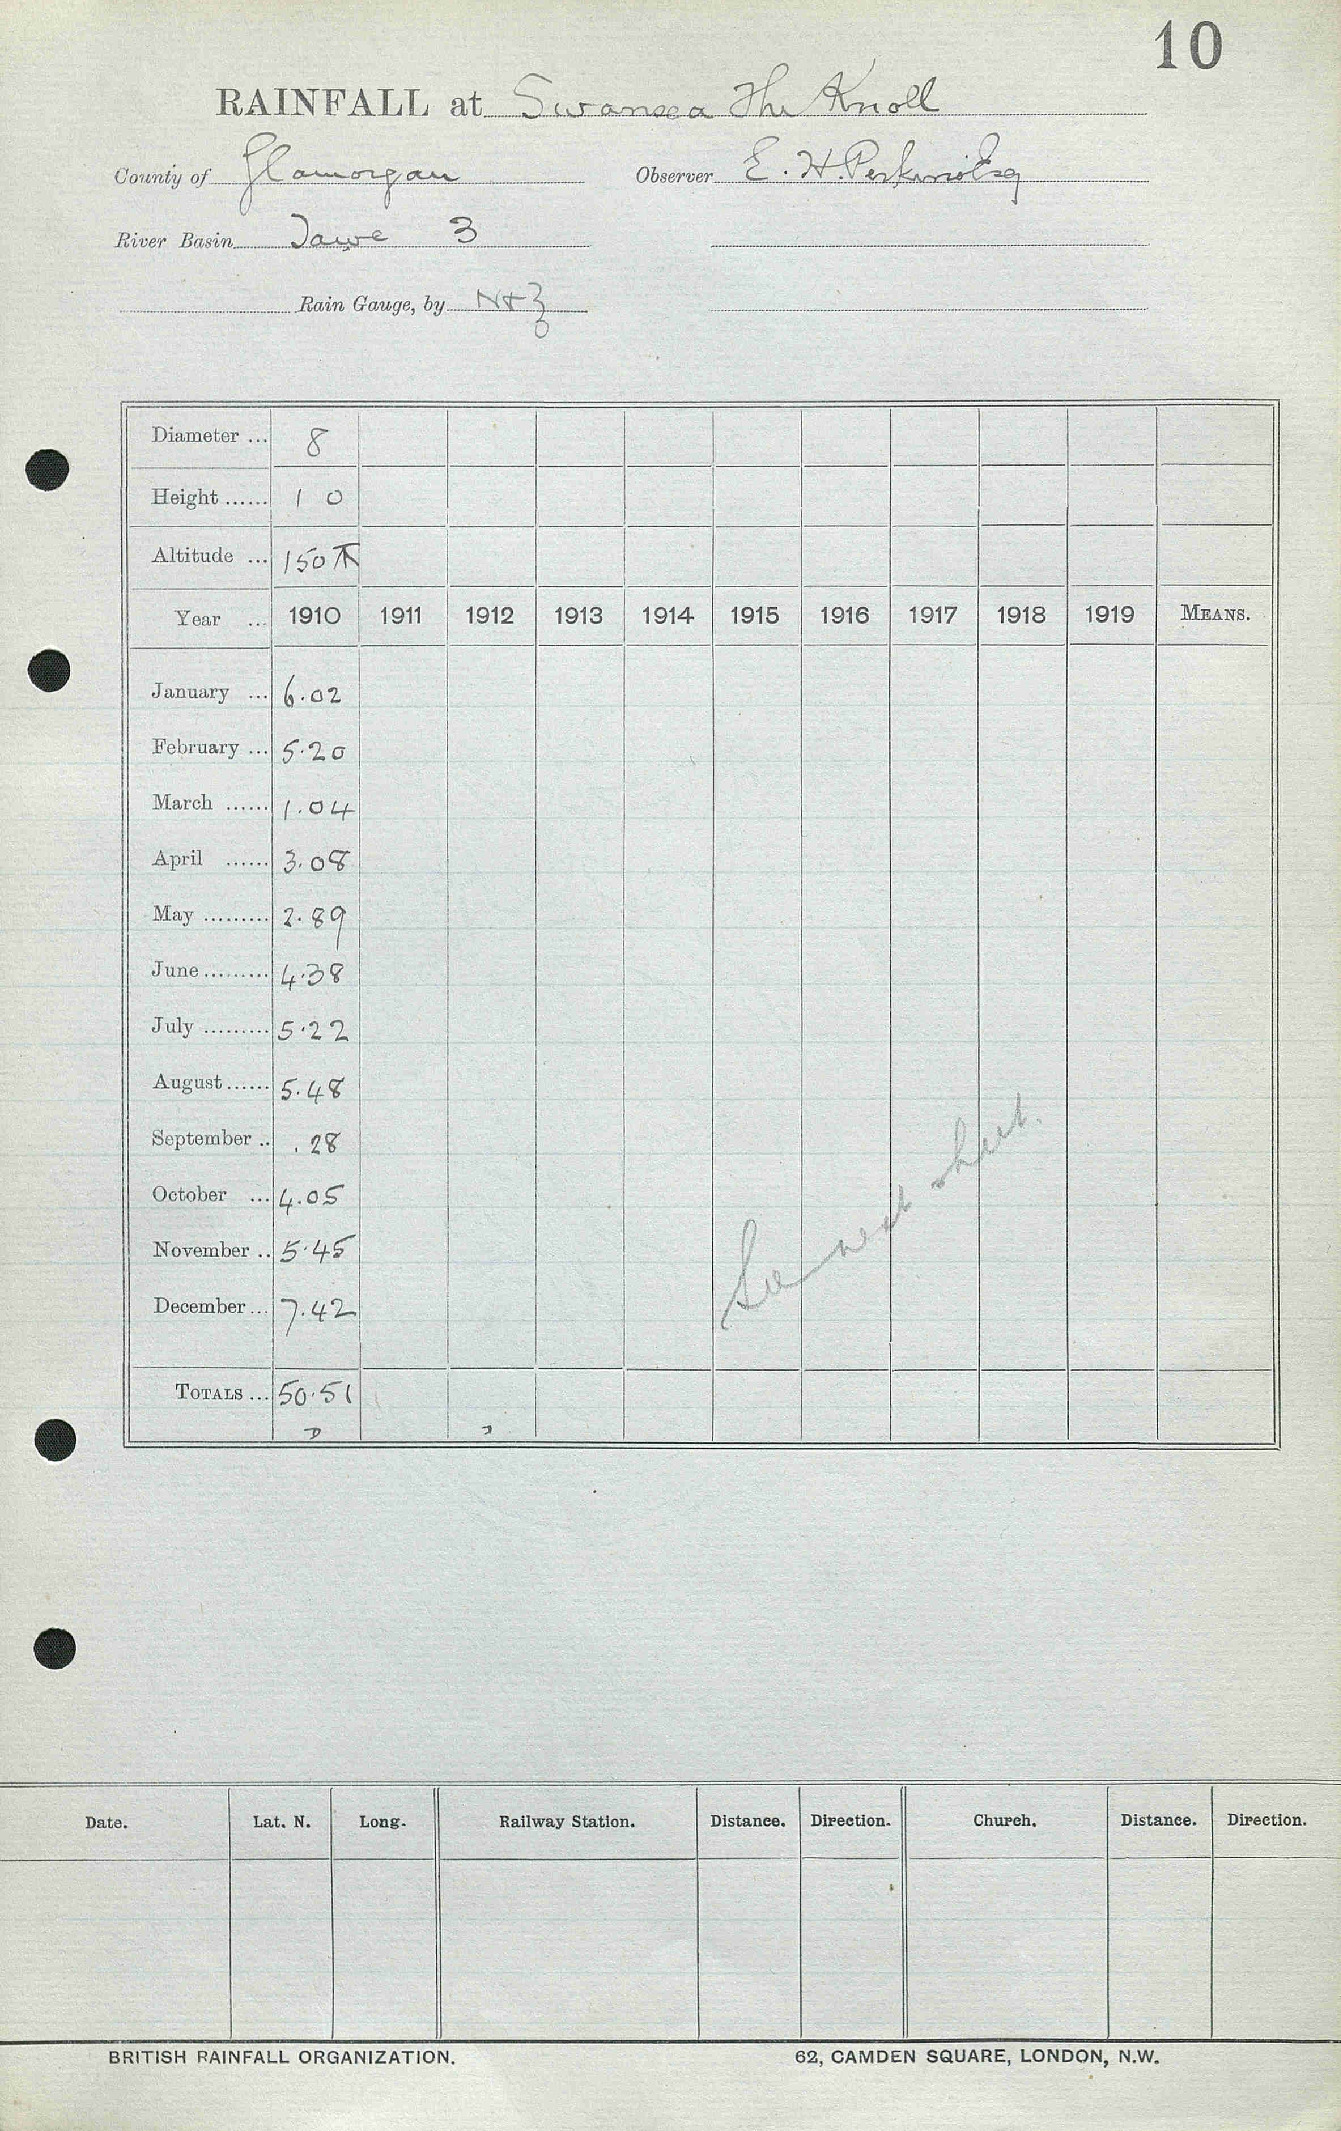 10
RAINFALL at Swansea The Knoll
County of Glamorgan Observer E. H. Perkins Esq
River Basin Tawe 3
Rain Gauge, by N+Z
Diameter ... 8
Height ...... 1 0
Altitude ... 150
Year ... 1910 1911 1912 1913 1914 1915 1916 1917 1918 1919 MEANS.
January ... 6.02
February ... 5.20
March ...... 1.04
April ...... 3.08
May ......... 2.89
June ......... 4.38
July ......... 5.22
August ...... 5.48
September .. .28
October ... 4.05
November .. 5.45
December ... 7.42
See next sheet.
TOTALS ... 50.51
Date. Lat. N. Long. Railway Station. Distance. Direction. Church. Distance. Direction.
BRITISH RAINFALL ORGANIZATION. 62, CAMDEN SQUARE, LONDON, N.W.